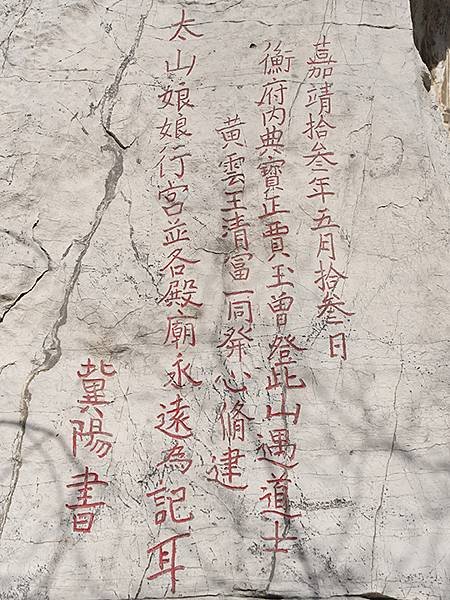 嘉靖拾叁年五月拾叁日
衡府內典寶正賈玉曾登此山遇道士
黃雲王清富一同發心脩建
太山娘娘行宮並各殿廟永遠為記耳
冀陽書